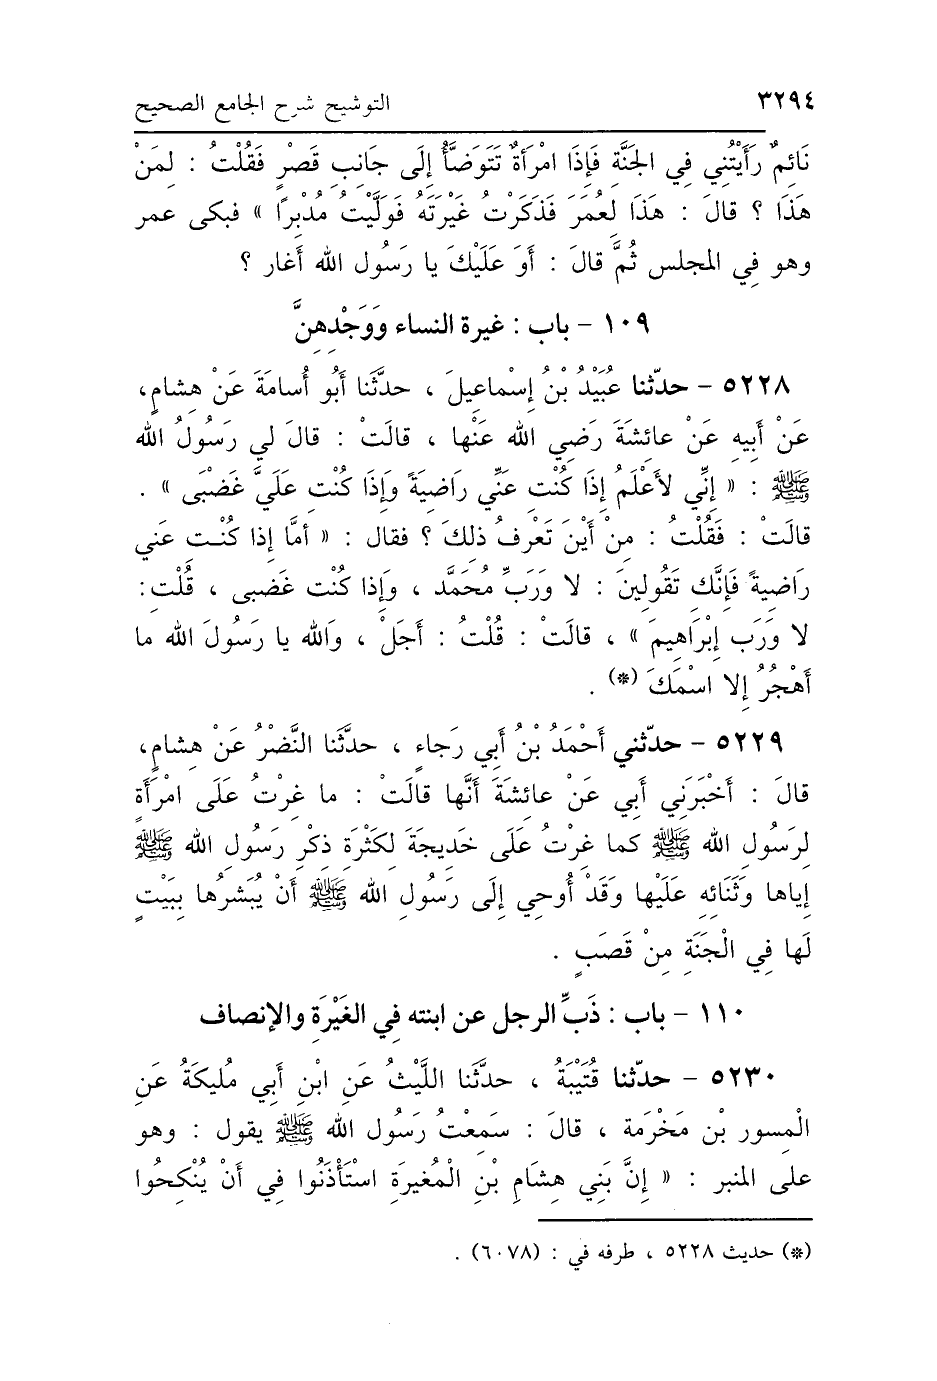 ٣٢٩٤ التوشيح شرح الجامع الصحيح
نَائِمٌ رَأَيْتُنِي فِي الجَنَّةِ فَإِذَا امْرَأَةٌ تَتَوَضَّأُ إِلَى جَانِبِ قَصْرٍ فَقُلْتُ : لِمَنْ
هَذَا ؟ قالَ : هَذَا لِعُمَرَ فَذَكَرْتُ غَيْرَتَهُ فَوَلَّيْتُ مُدْبِرًا » فبكى عمر
وهو فِي المجلس ثُمَّ قالَ : أَوَ عَلَيْكَ يا رَسُول الله أَغار ؟
١٠٩ – باب : غيرة النساء وَوَجْدِهِنَّ
٥٢٢٨ – حدّثنا عُبَيْدُ بْنُ إِسْماعيلَ ، حدَّثَنا أَبُو أُسامَةَ عَنْ هِشامٍ،
عَنْ أَبِيهِ عَنْ عائِشَةَ رَضِي الله عَنْها ، قالَتْ : قالَ لي رَسُولُ الله
ﷺ : « إِنِّي لأَعْلَمُ إِذَا كُنْتِ عَنِّي راضِيَةً وَإِذَا كُنْتِ عَلَيَّ غَضْبَى » .
قالَتْ : فَقُلْتُ : مِنْ أَيْنَ تَعْرِفُ ذلِكَ ؟ فقال : « أَمَّا إِذا كُنْتِ عَنِي
رَاضِيةً فَإِنَّكِ تَقُولِينَ : لا وَرَبِّ مُحَمَّد ، وَإِذا كُنْتِ غَضبى ، قُلْتِ:
لا وَرَبِ إِبْرَاهِيمَ » ، قالَتْ : قُلْتُ : أَجَلْ ، وَالله يا رَسُولَ الله ما
أَهْجُرُ إِلا اسْمَكَ (*) .
٥٢٢٩ – حدّثني أَحْمَدُ بْنُ أَبِي رَجاءٍ ، حدَّثَنا النَّضْرُ عَنْ هِشامٍ،
قالَ : أَخْبَرَنِي أَبي عَنْ عائِشَةَ أَنَّها قالَتْ : ما غِرْتُ عَلَى امْرَأَةٍ
لِرَسُولِ الله ﷺ كما غِرْتُ عَلَى خَدِيجَةَ لِكَثْرَةِ ذِكْرِ رَسُولِ الله ﷺ
إِياها وَثَنَائِهِ عَلَيْها وَقَدْ أُوحِي إِلَى رَسُولِ الله ﷺ أَنْ يُبَشِرُها بِبَيْتٍ
لَها فِي الْجَنَةِ مِنْ قَصَبٍ .
١١٠ – باب : ذَبِّ الرجل عن ابنته فِي الغَيْرَةِ والإنصاف
٥٢٣٠ – حدّثنا قُتَيْبَةُ ، حدَّثَنا اللَّيْثُ عَنِ ابْنِ أَبِي مُلَيكَةَ عَنِ
الْمِسور بْنِ مَخْرَمة ، قالَ : سَمِعْتُ رَسُول الله ﷺ يقول : وهو
على المنبر : « إِنَّ بَنِي هِشامِ بْنِ الْمُغيرَةِ اسْتَأْذَنُوا فِي أَنْ يُنْكِحُوا
(*) حديث ٥٢٢٨ ، طرفه في : (٦٠٧٨) .